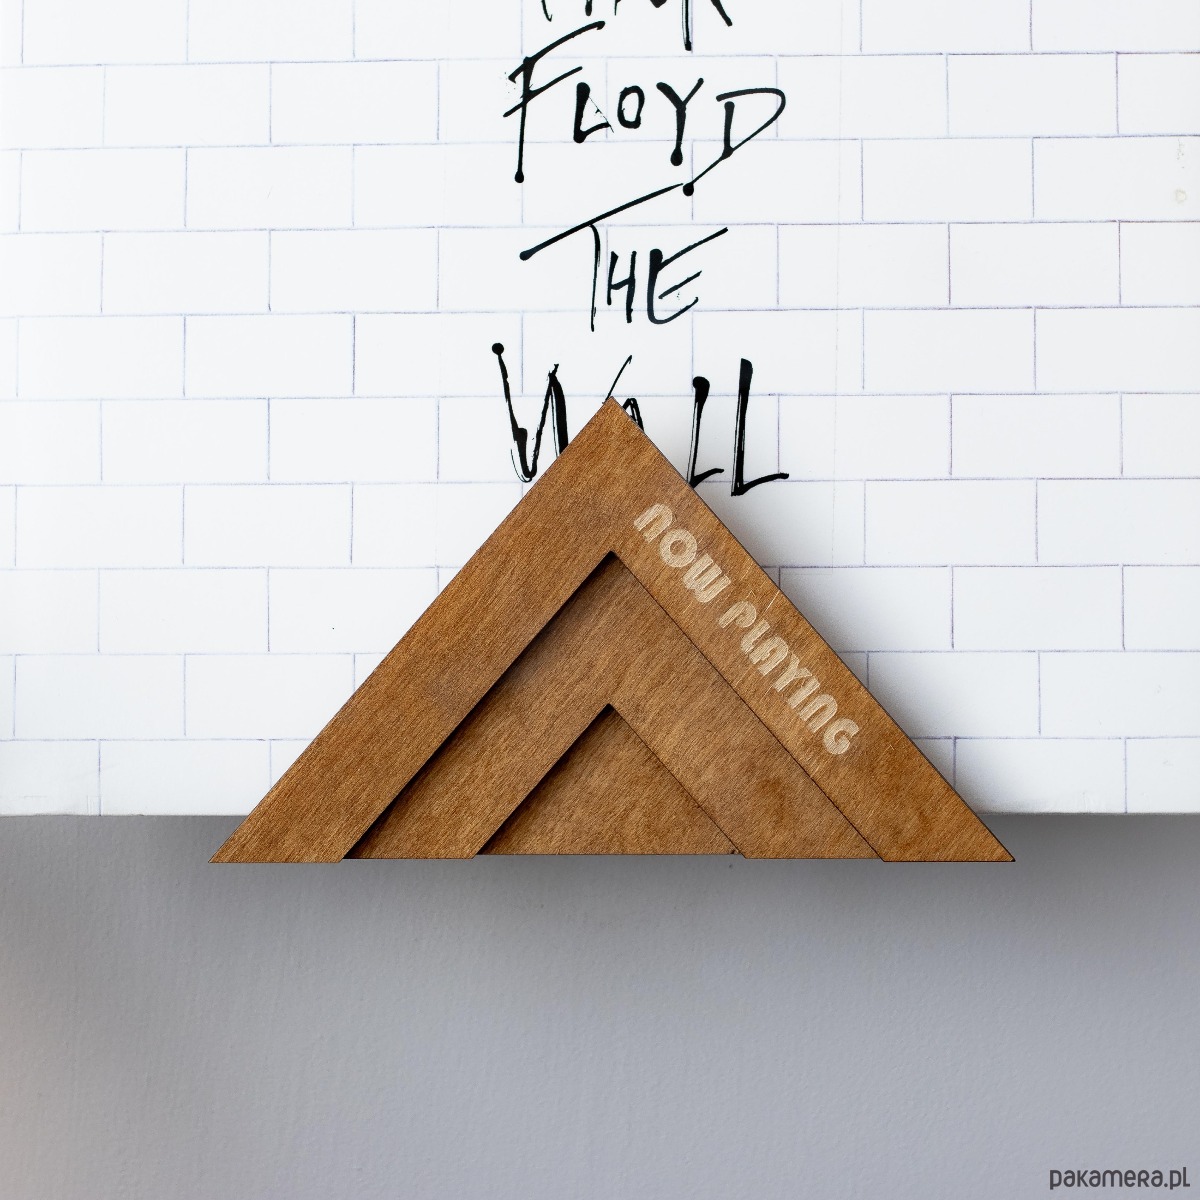 FLOYD
THE
WALL
NOW PLAYING
pakamera.pl